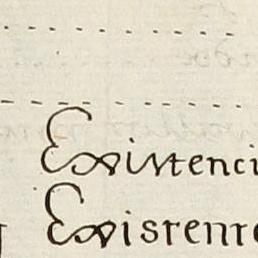 Exintenci
Existente